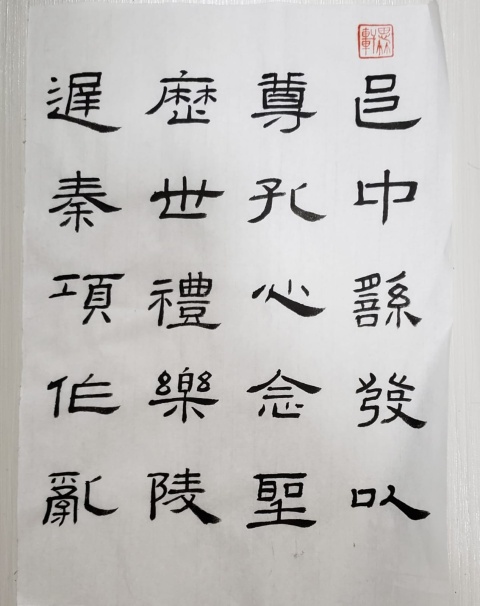 邑中繇發以
尊孔心念聖
歷世禮樂陵
遲秦項作亂